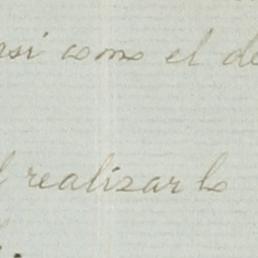 asi como el de
l realizarlo